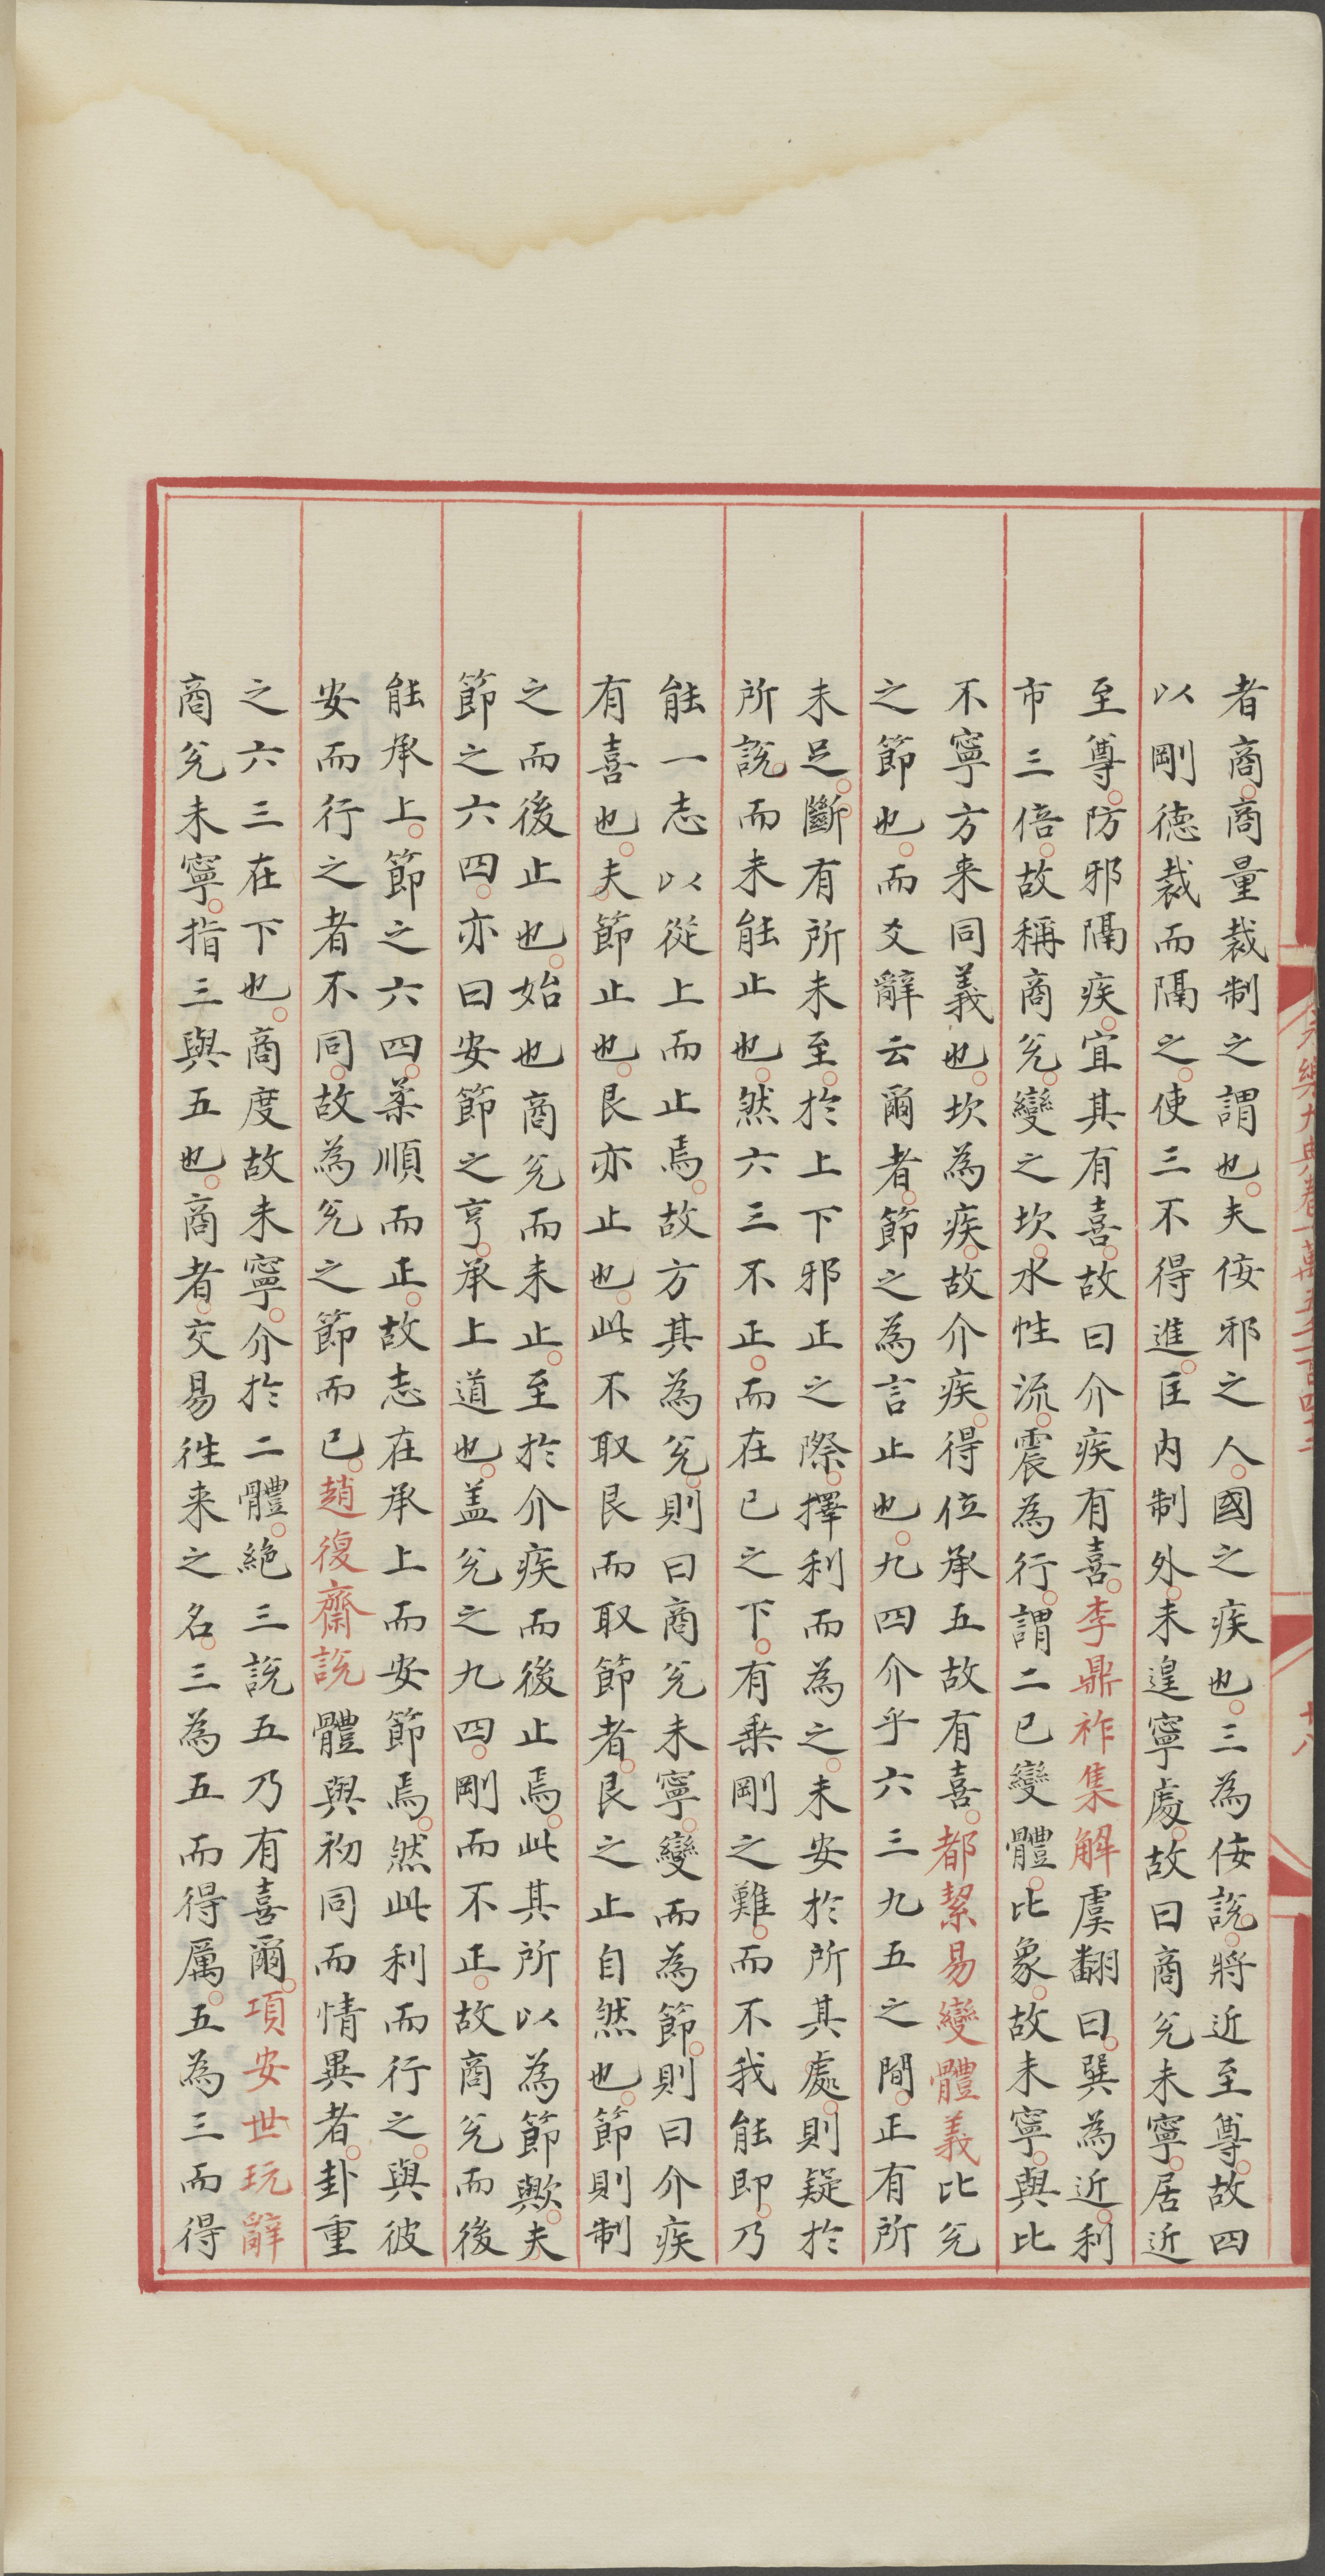 者商。商量裁制之謂也。夫佞邪之人。國之疾也。三為佞説。將近至尊。故四
以剛德裁而隔之。使三不得進。匡內制外。未遑寧處。故曰商兊未寧。居近
至尊。防邪隔疾。宜其有喜。故曰介疾有喜。李鼎祚集解虞翻曰。巽為近。利
市三倍。故稱商兊。變之坎。水性流。震為行。謂二已變體。比象。故未寧。與比
不寧方来同義也。坎為疾。故介疾。得位承五故有喜。都絜易變體義比兊
之節也。而爻辭云爾者。節之為言止也。九四介乎六三九五之間。正有所
未足。斷有所未至。於上下邪正之際。擇利而為之。未安於所其處。則疑於
所説。而未能止也。然六三不正。而在已之下。有乗剛之難。而不我能即。乃
能一志以從上而止焉。故方其為兊。則曰商兊未寧。變而為節。則曰介疾
有喜也。夫節止也。艮亦止也。此不取艮而取節者。艮之止自然也。節則制
之而後止也。始也商兊而未止。至於介疾而後止焉。此其所以為節歟。夫
節之六四。亦曰安節之亨。承上道也。盖兊之九四。剛而不正。故商兊而後
能承上。節之六四。柔順而正。故志在承上而安節焉。然此利而行之。與彼
安而行之者不同。故為兊之節而已。趙復齋説體與初同而情異者。卦重
之六三在下也。商度故未寧。介於二體。絶三説五乃有喜爾。項安世玩辭
商兊未寧。指三與五也。商者。交易徃来之名。三為五而得厲。五為三而得